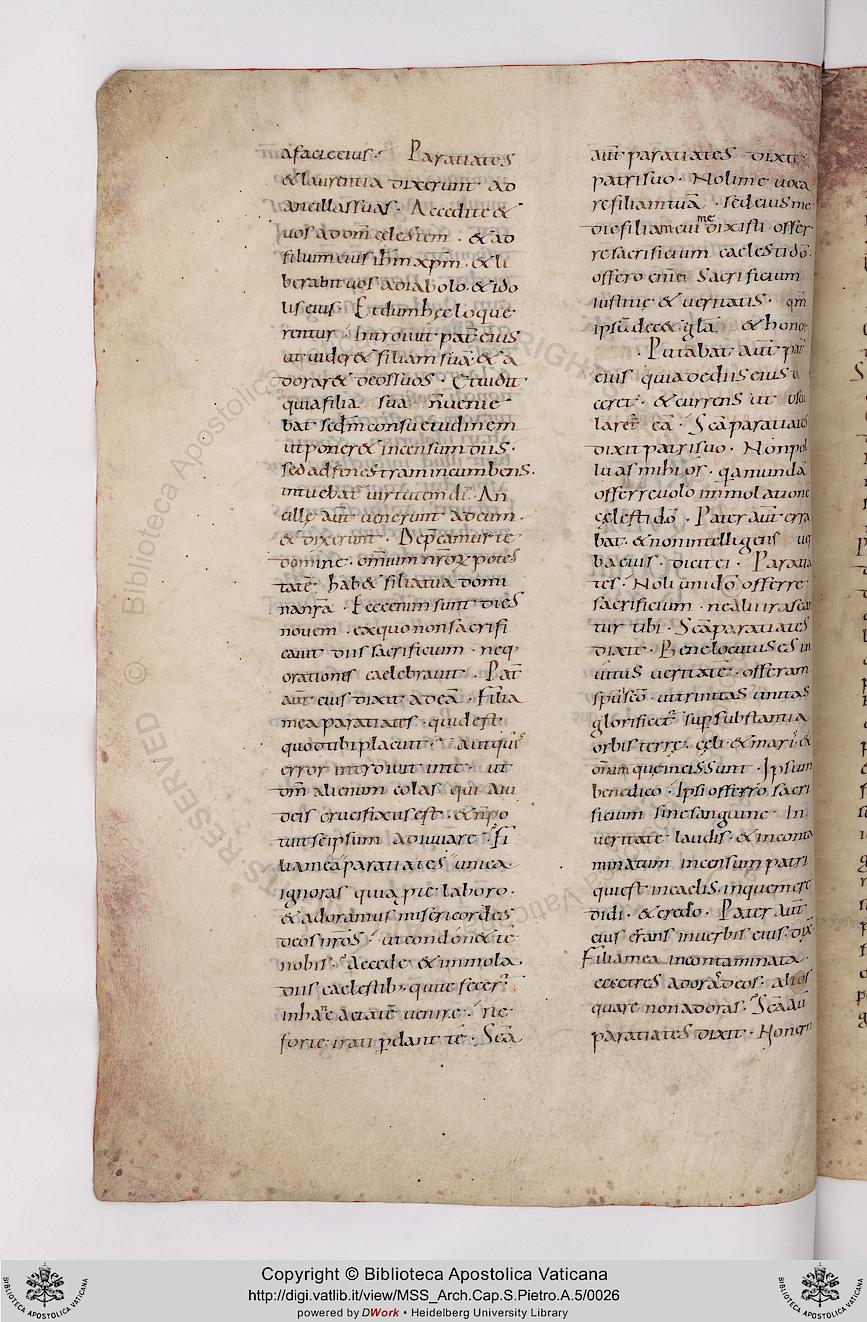 afacieeius· Paratiates
& laurentia dixerunt ad
ancillassuas· Accedite &
uos addoḿ celestem · & ad
filiumeius ihm̄ xp̄m · & li
berabit uos adiabolo · & ido
lis eius· Et dum hęc loque
rentur· Introiuit pat̄ eius
ut uider& filiam suā· & a
dorar& deossuos· Etuidit
quiafilia sua n̄uenie
bat sedm̄ consuetudinem
utponer& incensum diis·
sed ad finestram incumbens·
intuebat̄ uirtutem dī· An
cille aūt uenerunt ad eum·
& dixerunt· Depcamur te
domine· omnium nr̄oꝝ potes
tatē· hab& filiatua domi
nanr̄a· Ecce enim sunt dies
nouem· ex quo non sacrifi
cauit diis sacrificium· neq
orationes caelebrauit· Pat̄
aūt eius dixit ad eā· Filia
mea paratiates· quid est
quod tibi placuit· aut quis
error introiuit in te· ut
dm̄ alienum colas qui a iu
deis crucifixus est· & n̄ po
tuit seipsum adiuuare· Fi
lia mea paratiates unica·
ignoras quia p te laboro·
& adoramus misericordes
deos nr̄os· ut condon& te
nobis· Accede & immola·
diis caelestib;· qui te fecer̄
in hanc aetatē uenire· ne
forte irati ꝑdant te· Sc̄a
aūt paratiates dixit
patri suo· Noli me uoca
re filiam tuā· sed eius me
dic filiam cui me dixisti offer
re sacrificium caelesti dō·
offero enī ei sacrificium
iustitie & ueritatis· qm̄
ipsū dec& gla & honor
· Putabat aūt pat̄
eius quia de diis eius di
ceret· & currens ut oscu
lar& eā· Sc̄a paratiates
dixit patri suo· Non pol
luas mihi os· qa munda
offerre uolo immolatione
celesti dō· Pater aūt erra
bat· & non intelligens uer
ba eius· dicit ei· Paratia
tes· Noli uni dō offerre
sacrificium· ne alii irascan
tur tibi· Sc̄a paratiates
dixit· Bene locutus es in
uitus ueritatē· offeram
spū scō· ut trinitas unitas
glorificet̄ sup substantia
orbis terre· celi & maris &
omnium que in eis sunt· Ipsum
benedico· Ipsi offerro sacri
ficium sine sanguine· In
ueritate laudis· & inconta
minatum incensum patri
qui est in caelis· in quem cre
didi· & credo· Pater aūt
eius errans in uerbis eius dix̄
Filia mea incontaminata·
ecce tres adoras deos· alios
quare non adoras· Sc̄a aūt
paratiates dixit· Non
Copyright © Biblioteca Apostolica Vaticana
http://digi.vatlib.it/view/MSS_Arch.Cap.S.Pietro.A.5/0026
powered by DWork • Heidelberg University Library